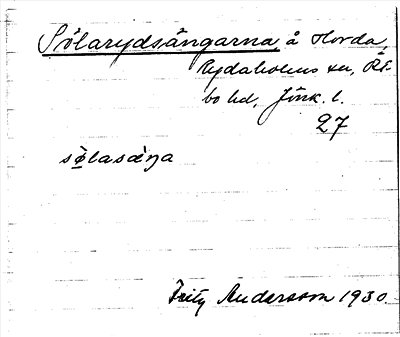 Sölarydsängarna, å Horda,
Rydaholms sn, Öst-
bo hd, Jönk. l.
27
sølasäŋa
Fritz Andersson 1930.